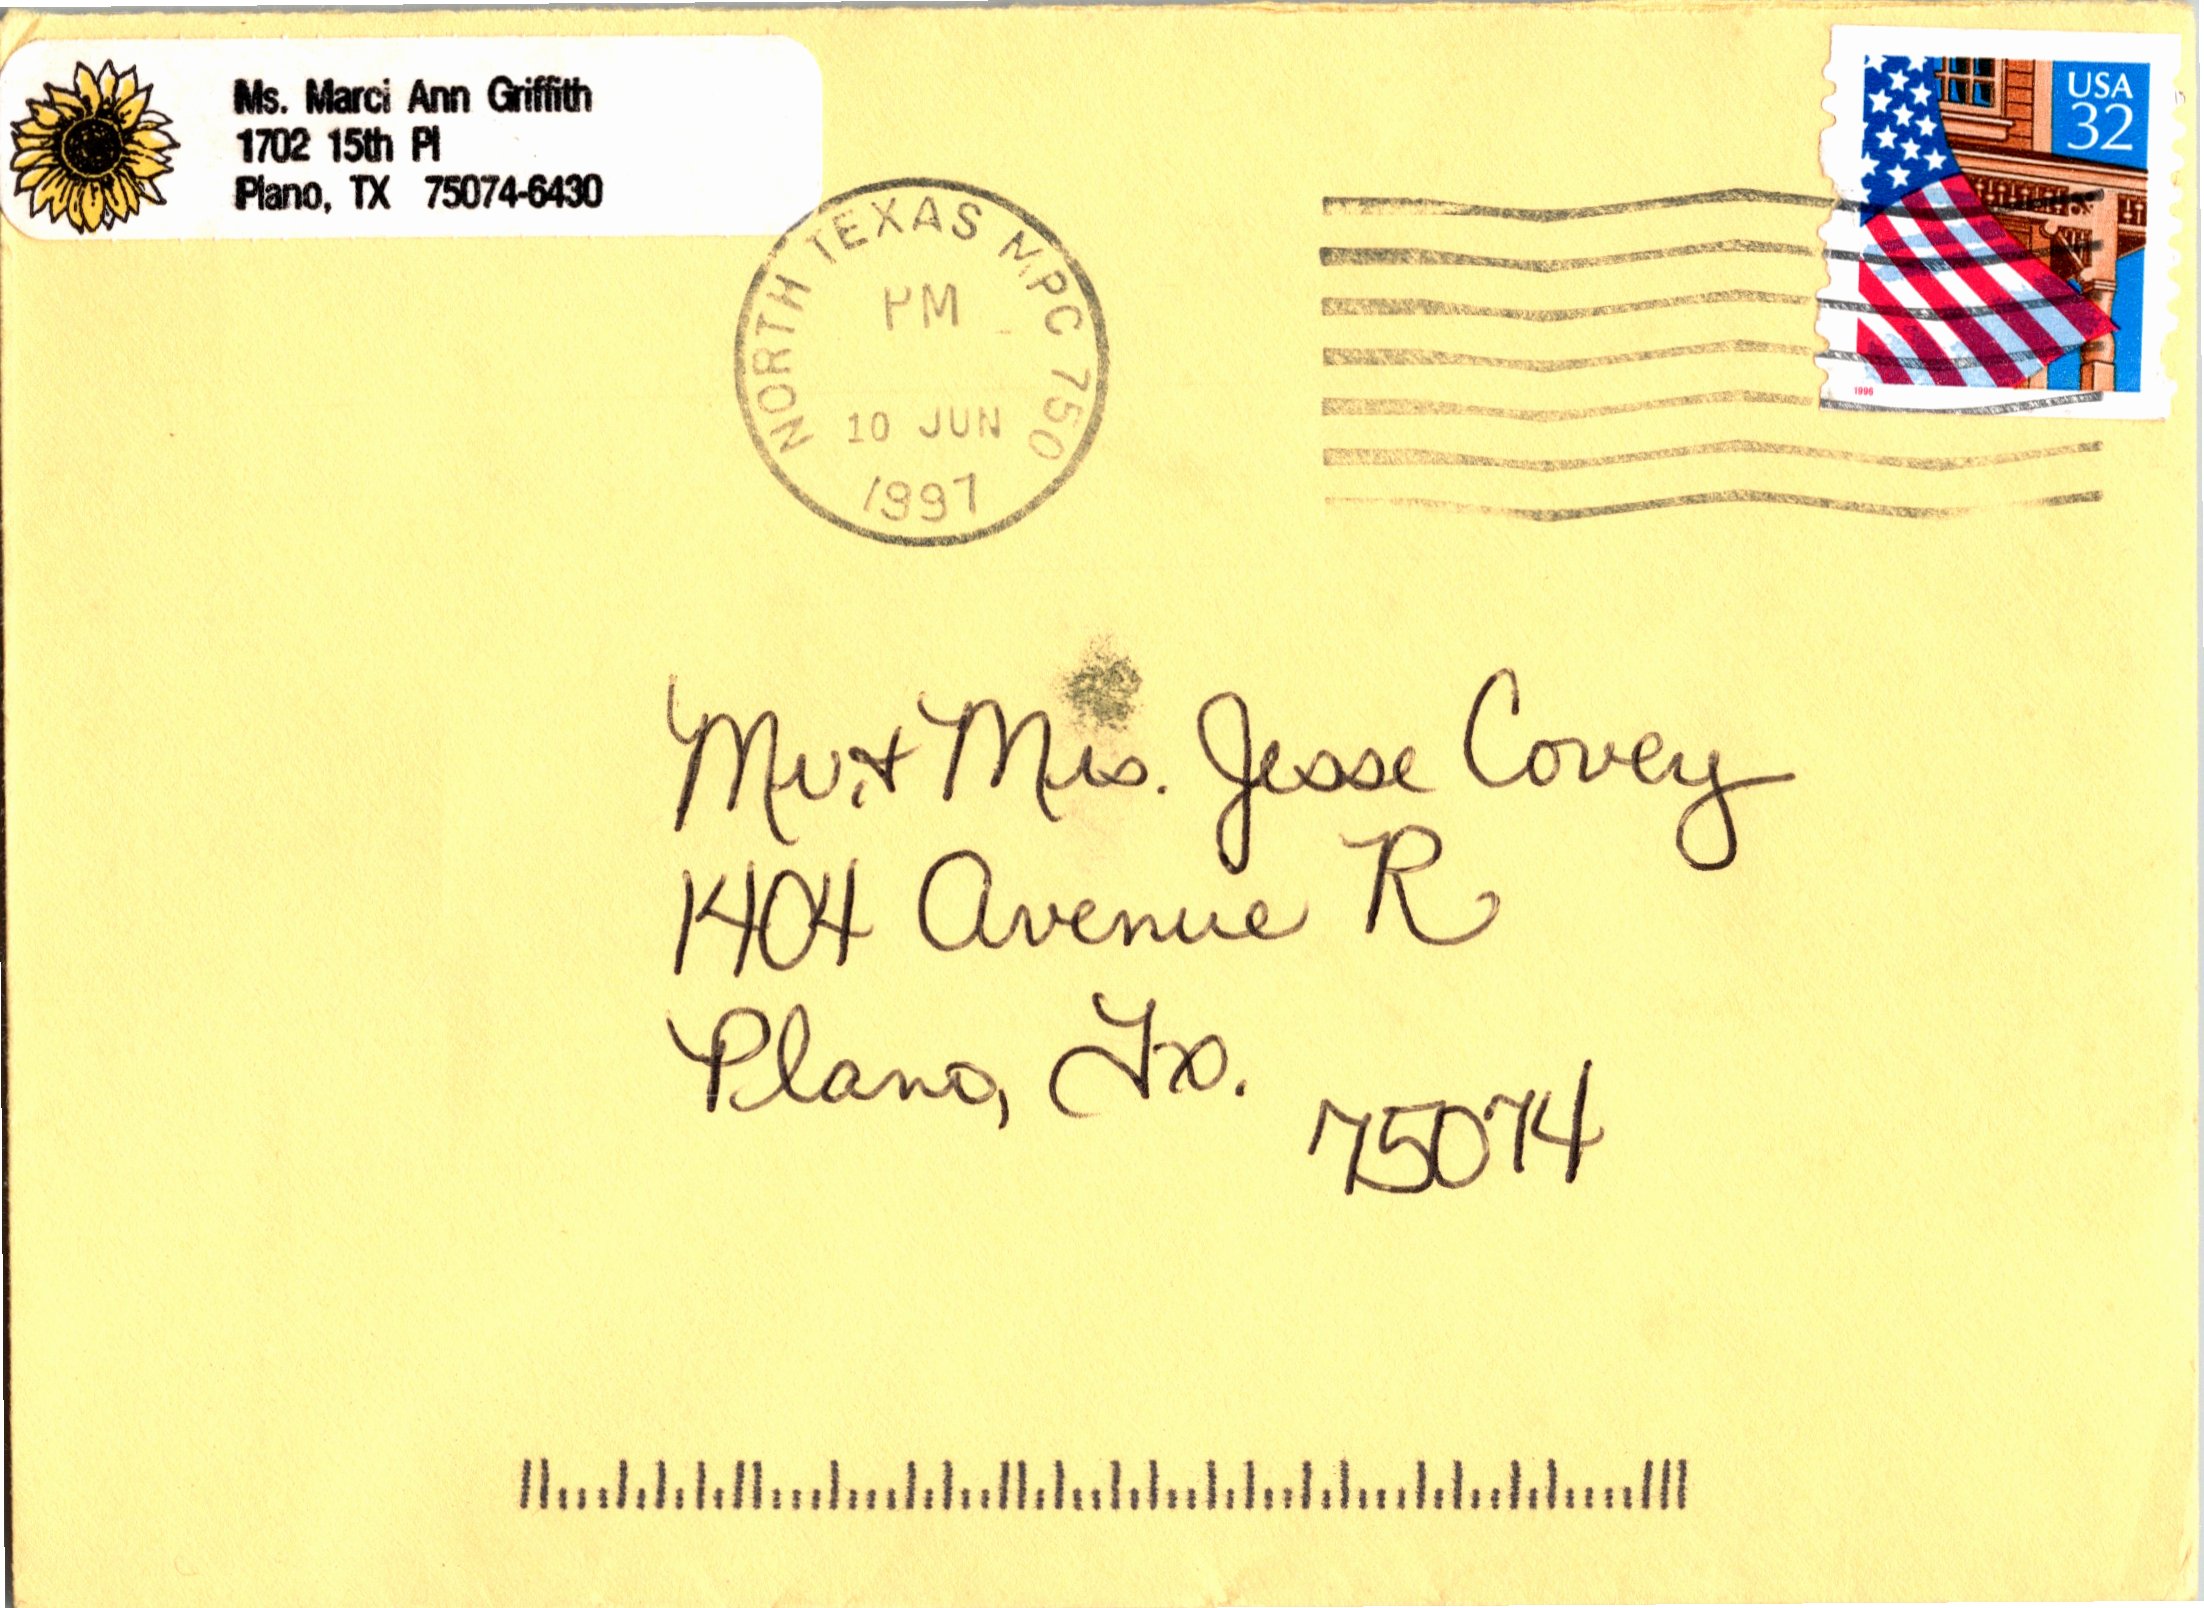 Ms. Marci Ann Griffith
1702 15th Pl
Plano, TX 75074-6430
NORTH TEXAS MPC 750
PM
10 JUN
1997
USA
32
1996
Mr. & Mrs. Jesse Covey
1404 Avenue R
Plano, Tx.
75074